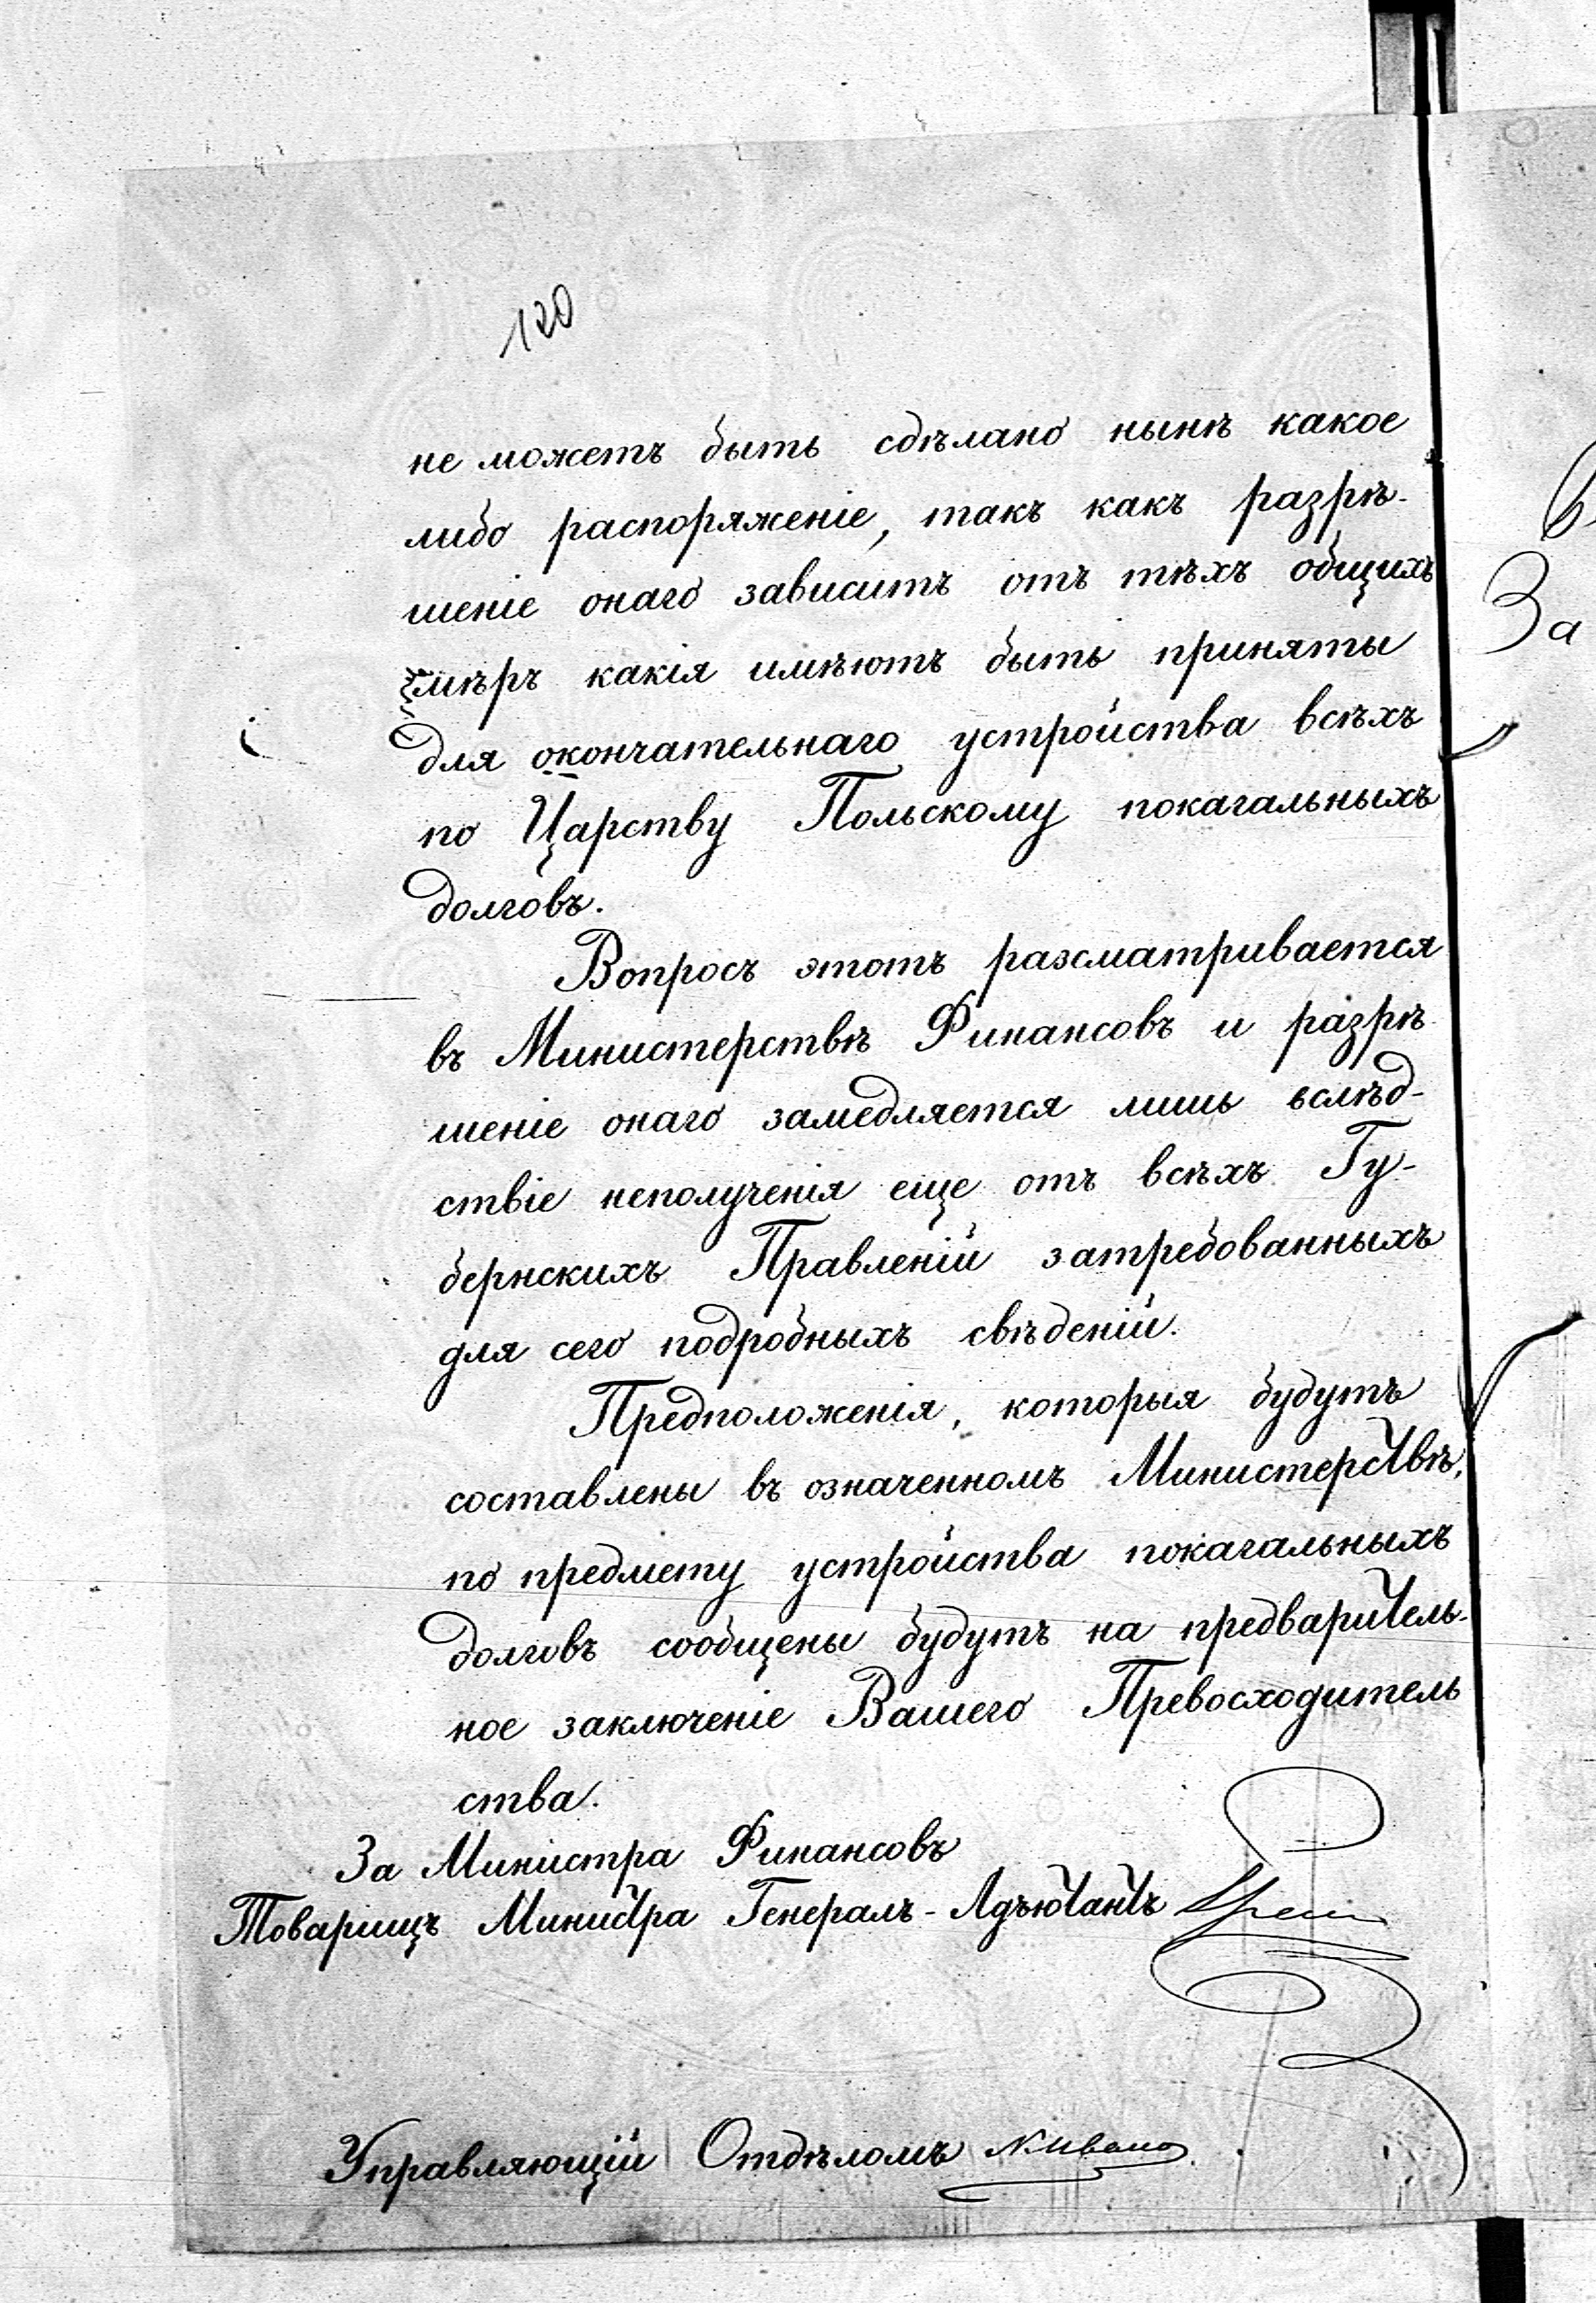 120
не можетъ быть сдѣлано нынѣ какое
либо распоряженіе, такъ какъ разрѣ-
шеніе онаго зависитъ отъ тѣхъ общихъ
мѣръ какія имѣютъ быть приняты
для окончательнаго устройства всѣхъ
по Царству Польскому покагальныхъ
долговъ.
Вопросъ этотъ разсматривается
въ Министерствѣ Финансовъ и разрѣ
шеніе онаго замедляется лишь вслѣд-
ствіе неполученія еще отъ всѣхъ Гу-
бернскихъ Правленій затребованныхъ
для сего подробныхъ свѣденій.
Предположенія, которыя будутъ
составлены въ означенномъ Министерствѣ,
по предмету устройства покагальныхъ
долговъ сообщены будутъ на предваритель-
ное заключеніе Вашего Превосходитель
ства.
За Министра Финансовъ
Товарищъ Министра Генералъ-Адъютантъ
Управляющій Отдѣломъ
За